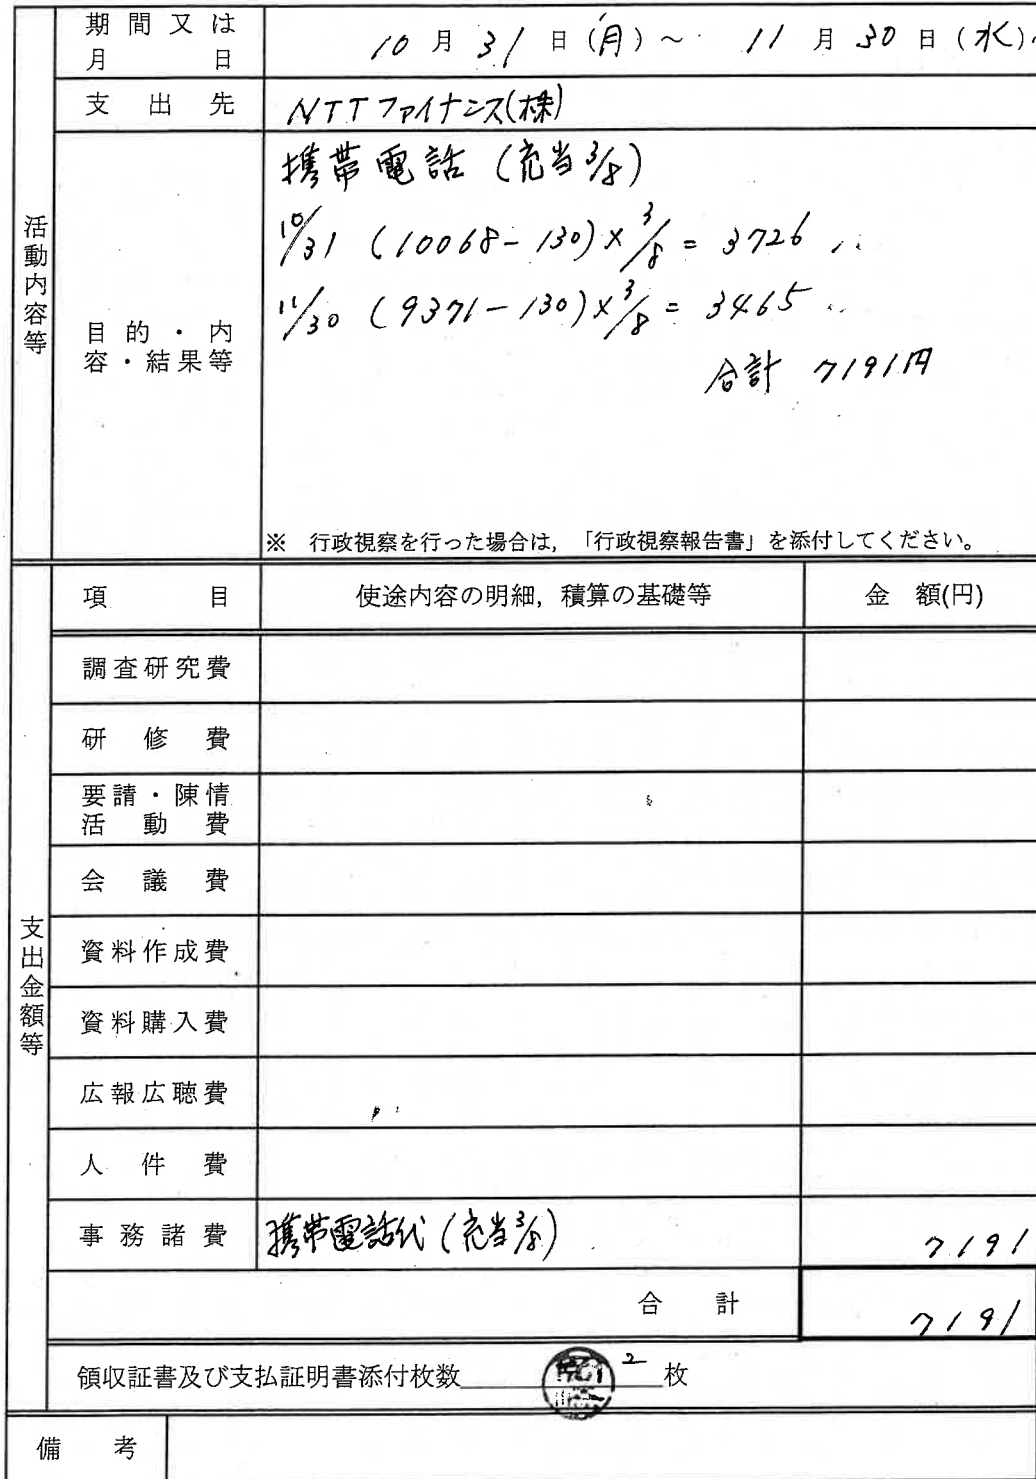 期間又は
月日
10月31日(月)~11月30日(水)
支出先
NTTファイナンス(株)
活動内容等
目的・内
容・結果等
携帯電話(充当3/8)
10/31 (10068-130)×3/8=3726
11/30 (9371-130)×3/8=3465
合計 7191円
※ 行政視察を行った場合は,「行政視察報告書」を添付してください。
支出金額等
項目 使途内容の明細,積算の基礎等 金額(円)
調査研究費
研修費
要請・陳情
活動費
会議費
資料作成費
資料購入費
広報広聴費
人件費
事務諸費 携帯電話代(充当3/8) 7191
合計 7191
領収証書及び支払証明書添付枚数 2 枚
備考